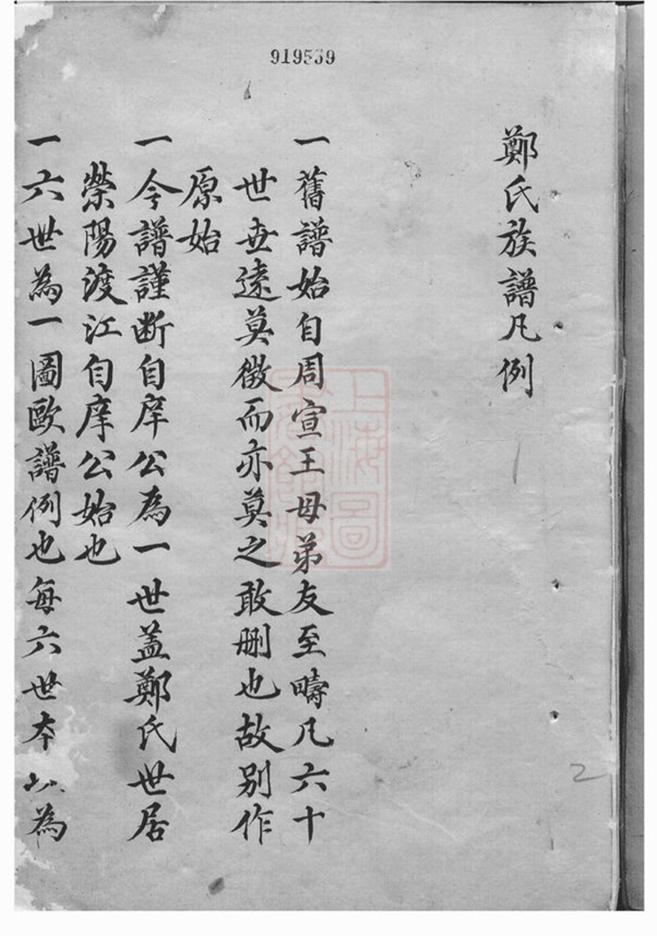 919539
鄭氏族譜凡例
一舊譜始自周宣王母弟友至疇凡六十
世世遠莫徵而亦莫之敢刪也故别作
原始
一今譜謹断自庠公為一世盖鄭氏世居
榮陽渡江自庠公始也
一六世為一圖歐譜例也每六世本 為
上海圖
2